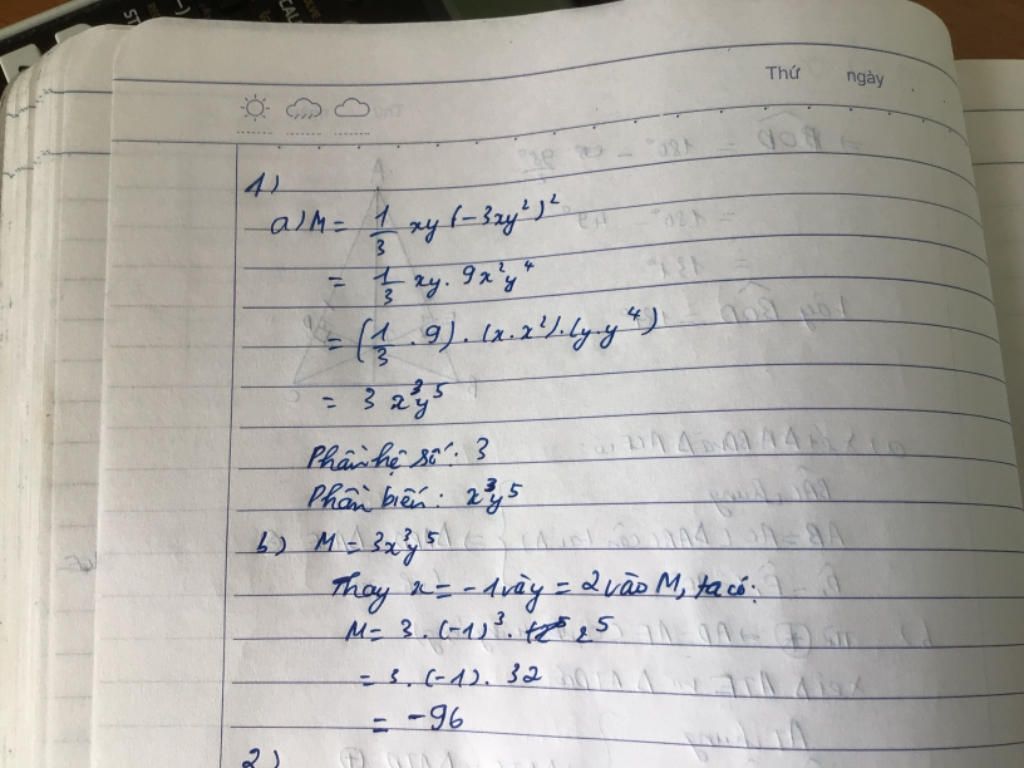 Thứ ngày
1)
a) M = 1/3 xy (-3xy²)²
= 1/3 xy . 9x²y⁴
= (1/3 . 9) . (x.x²) . (y.y⁴)
= 3 x³y⁵
Phần hệ số: 3
Phần biến: x³y⁵
b) M = 3x³y⁵
Thay x = -1 và y = 2 vào M, ta có:
M = 3 . (-1)³ . 2⁵
= 3 . (-1) . 32
= -96
2)